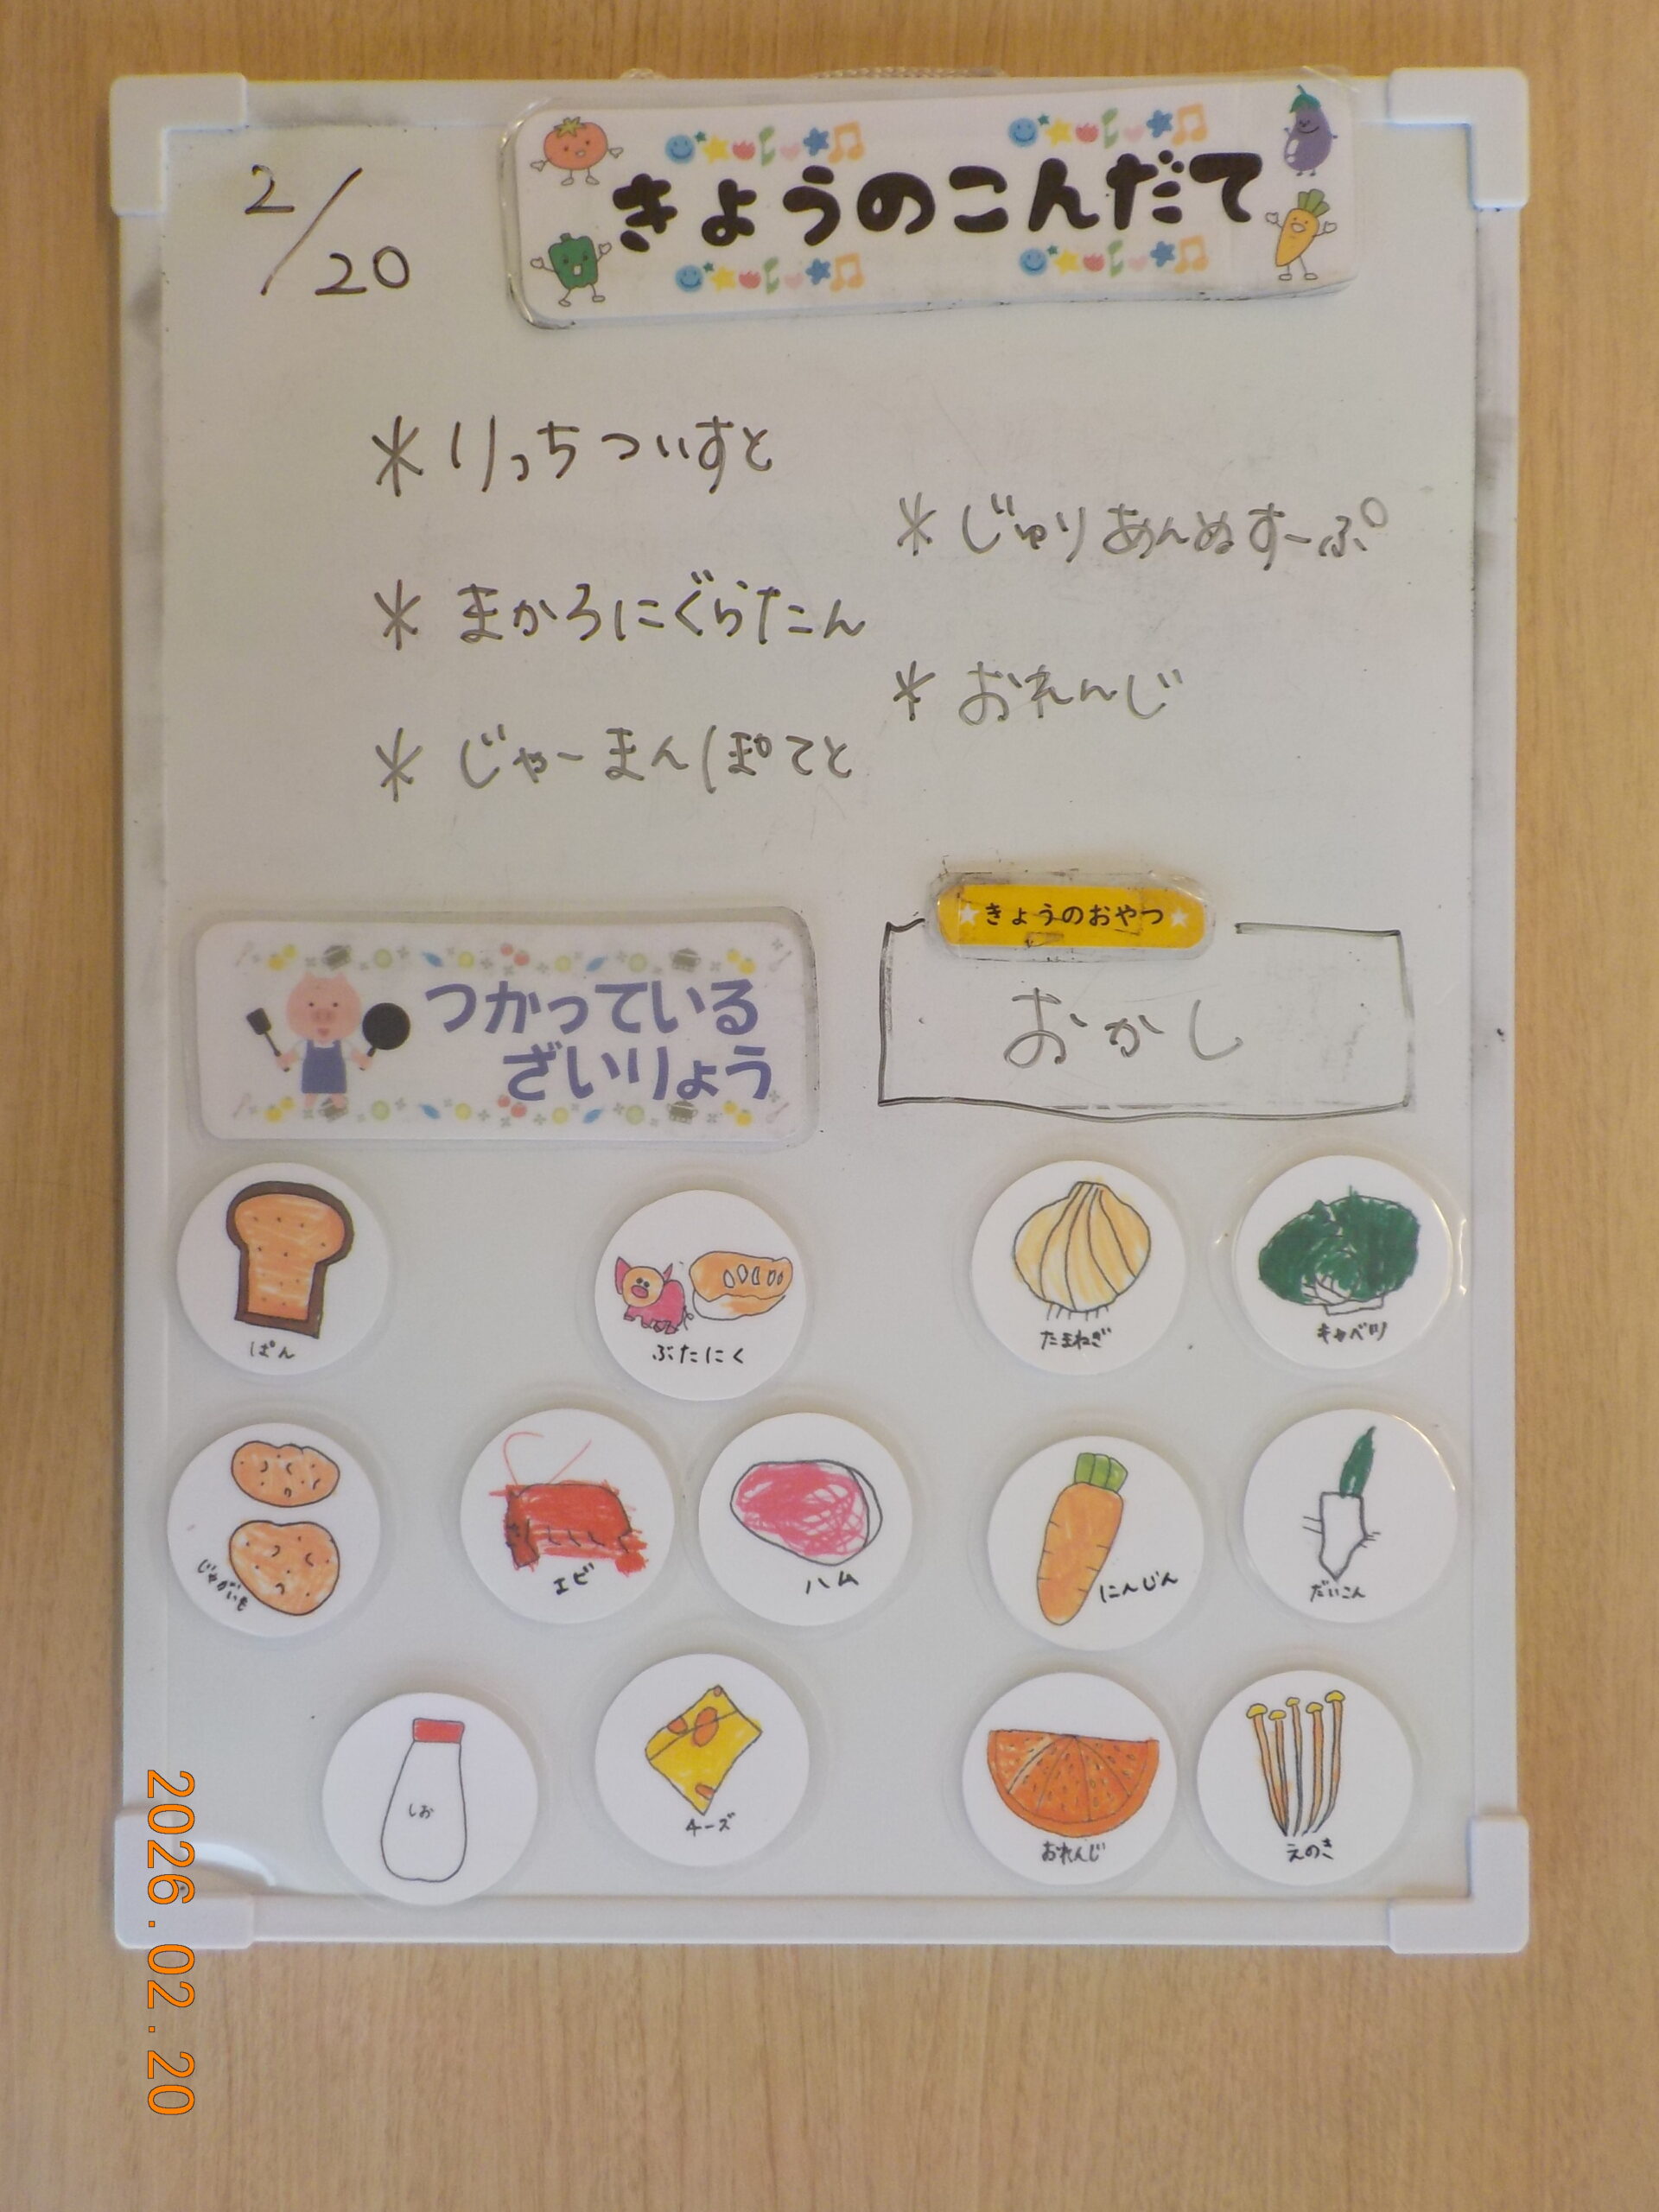 2/20
きょうのこんだて
＊りっちついすと
＊まかろにぐらたん
＊じゃーまんぽてと
＊じゅりあんぬすーぷ
＊おれんじ
きょうのおやつ
おかし
つかっている
ざいりょう
ぱん
ぶたにく
たまねぎ
キャベツ
じゃがいも
エビ
ハム
にんじん
だいこん
しお
チーズ
おれんじ
えのき
2026.02.20